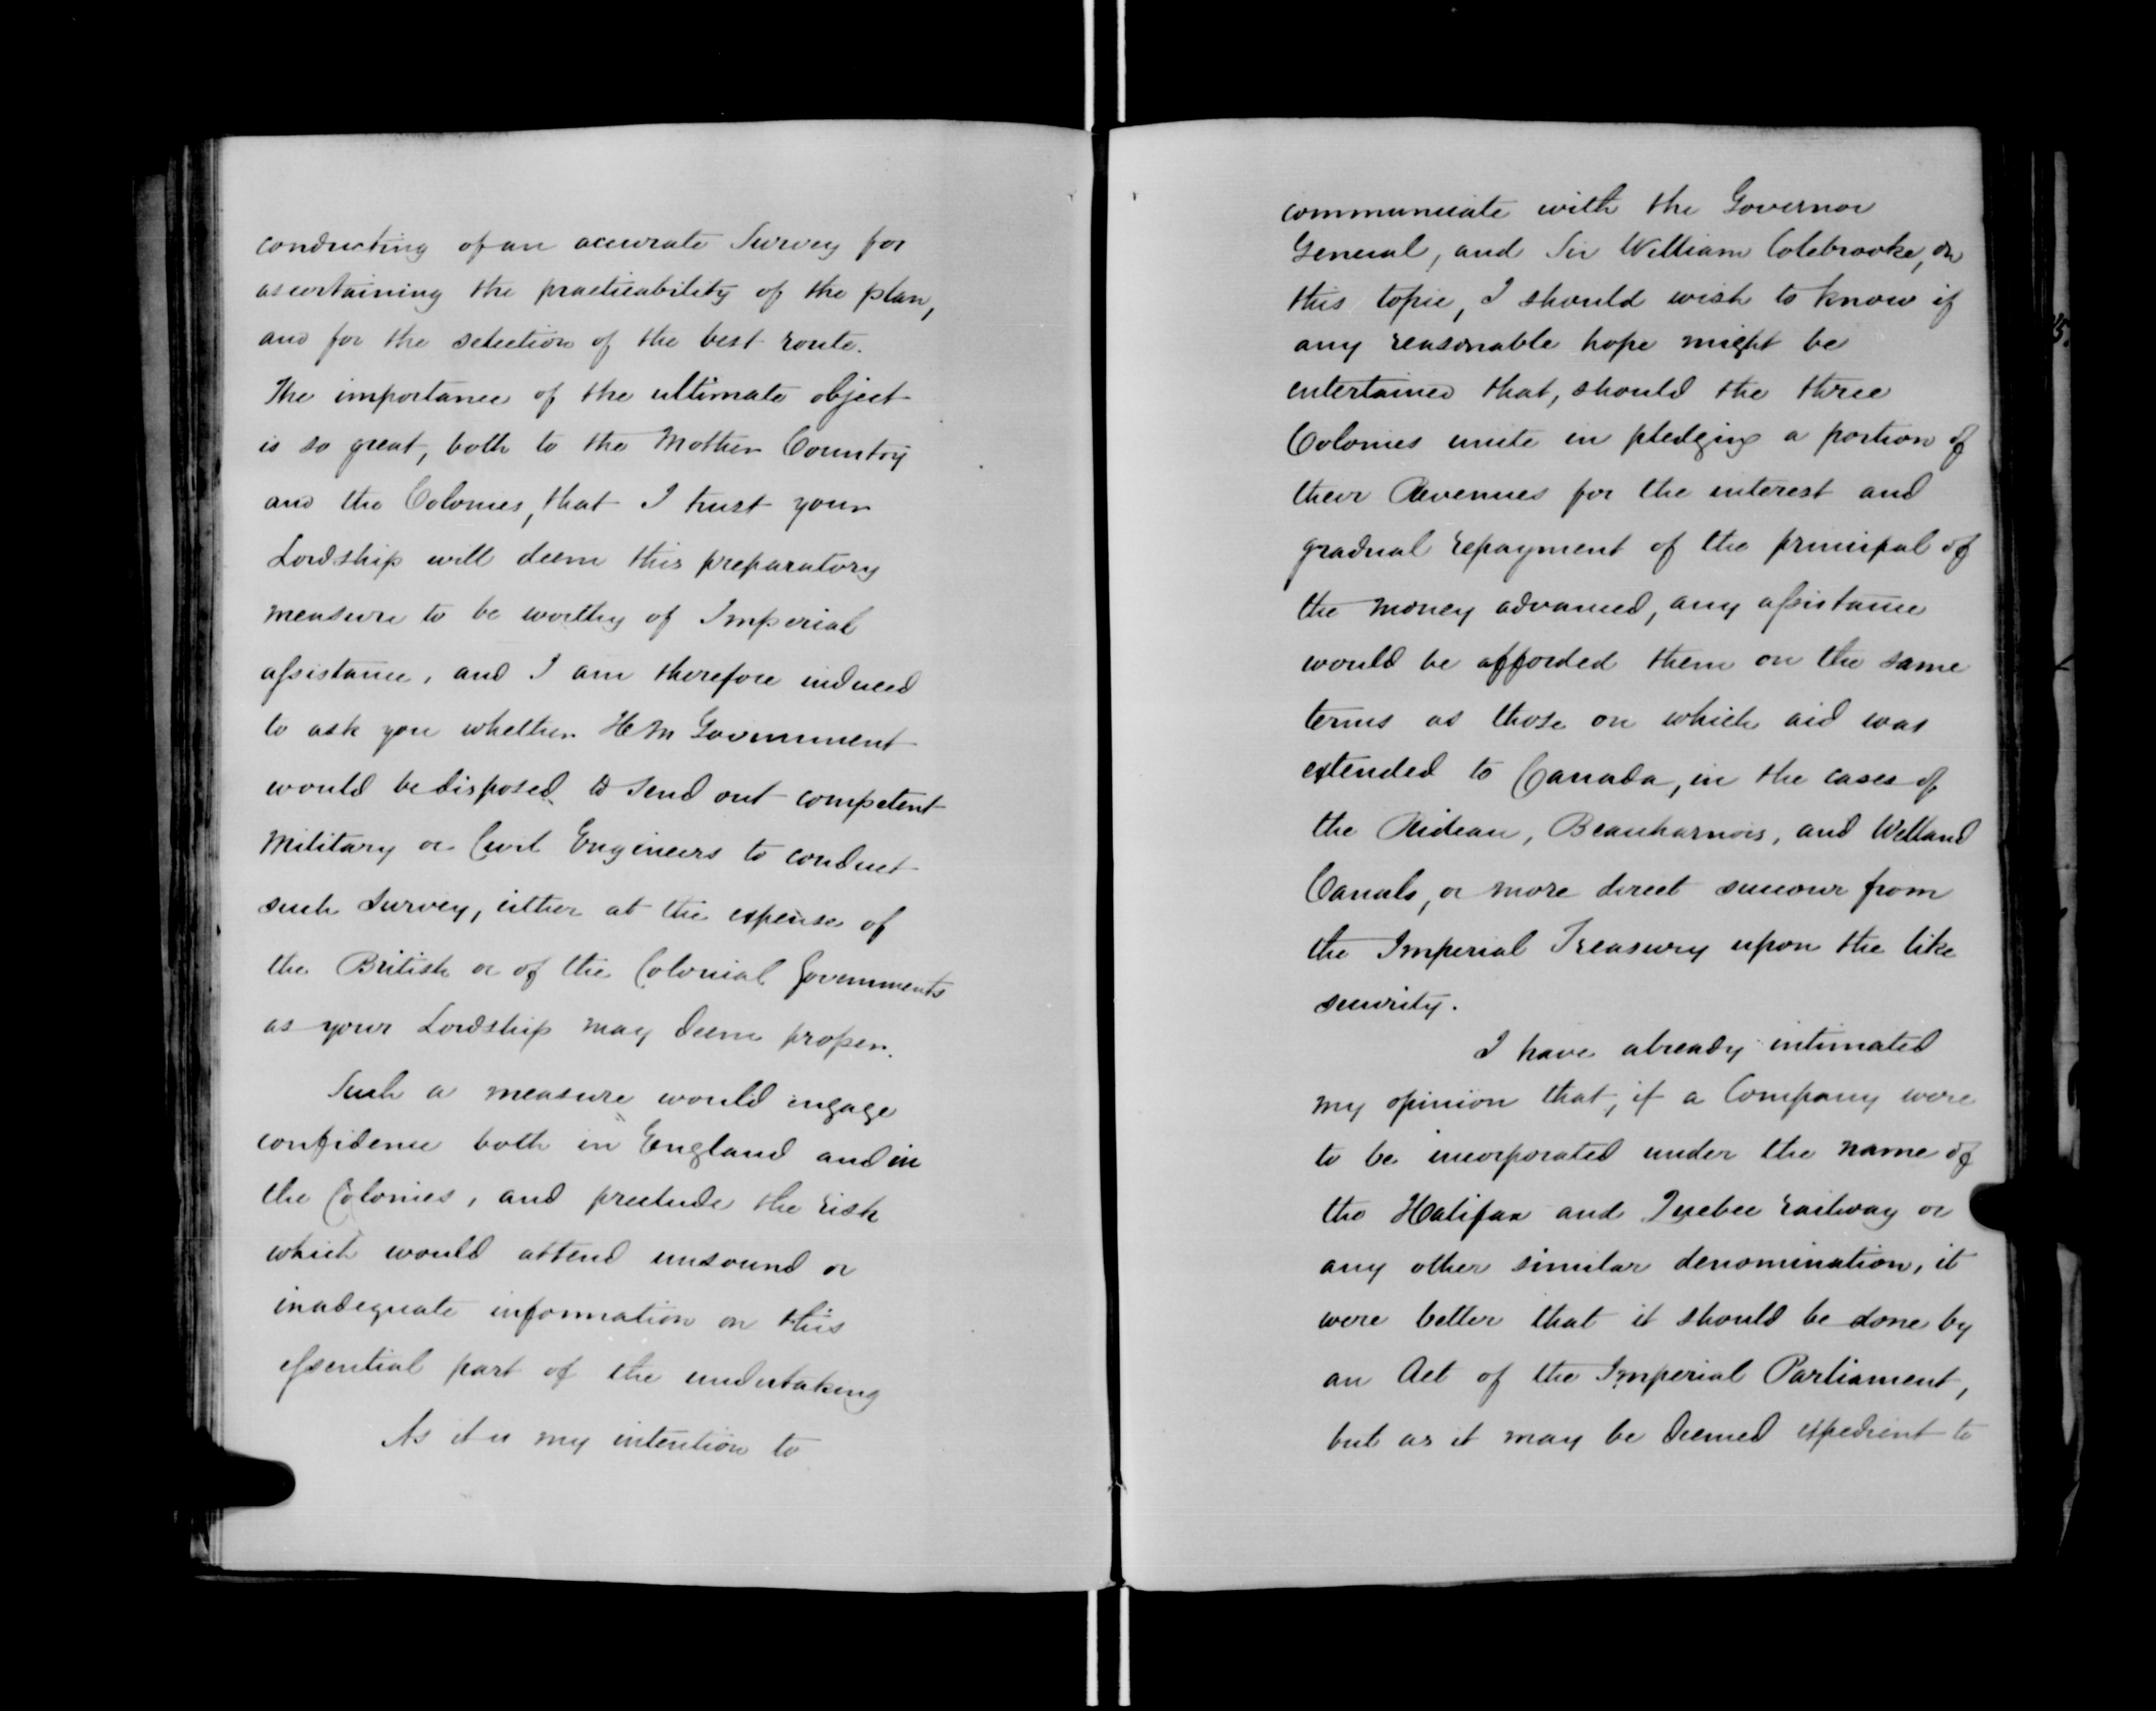 conducting of an accurate Survey for
ascertaining the practicability of the plan,
and for the selection of the best route.
The importance of the ultimate object
is so great, both to the Mother Country
and the Colonies, that I trust your
Lordship will deem this preparatory
measure to be worthy of Imperial
assistance, and I am therefore induced
to ask you whether H M Government
would be disposed to send out competent
Military or Civil Engineers to conduct
such Survey, either at the expense of
the British or of the Colonial Governments
as your Lordship may deem proper.
Such a measure would engage
confidence both in England and in
the Colonies, and preclude the risk
which would attend unsound or
inadequate information on this
essential part of the undertaking
As it is my intention to
communicate with the Governor
General, and Sir William Colebrooke, on
this topic, I should wish to know if
any reasonable hope might be
entertained that, should the three
Colonies unite in pledging a portion of
their Revenues for the interest and
gradual repayment of the principal of
the money advanced, any assistance
would be afforded them on the same
terms as those on which aid was
extended to Canada, in the cases of
the Rideau, Beauharnois, and Welland
Canals, or more direct succour from
the Imperial Treasury upon the like
security.
I have already intimated
my opinion that, if a Company were
to be incorporated under the name of
the Halifax and Quebec railway or
any other similar denomination, it
were better that it should be done by
an Act of the Imperial Parliament,
but as it may be deemed expedient to